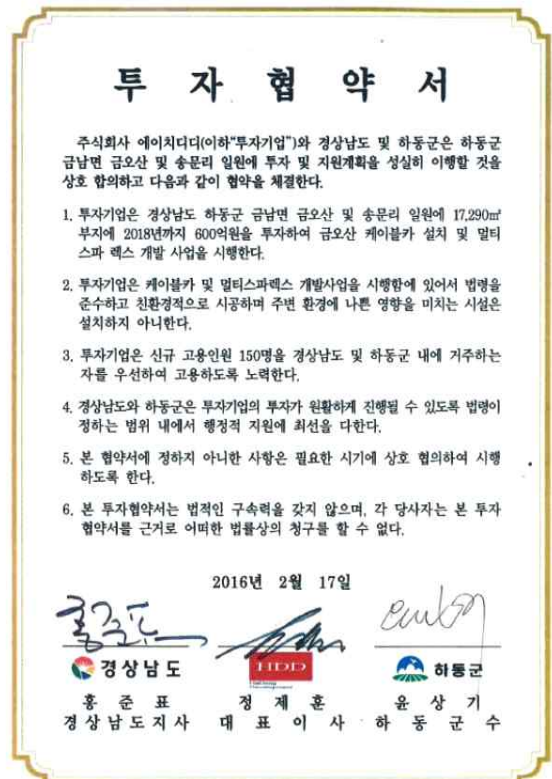 투 자 협 약 서
주식회사 에이치디디(이하"투자기업")와 경상남도 및 하동군은 하동군
금남면 금오산 및 송문리 일원에 투자 및 지원계획을 성실히 이행할 것을
상호 합의하고 다음과 같이 협약을 체결한다.
1. 투자기업은 경상남도 하동군 금남면 금오산 및 송문리 일원에 17,290㎡
부지에 2018년까지 600억원을 투자하여 금오산 케이블카 설치 및 멀티
스파 렉스 개발 사업을 시행한다.
2. 투자기업은 케이블카 및 멀티스파렉스 개발사업을 시행함에 있어서 법령을
준수하고 친환경적으로 시공하며 주변 환경에 나쁜 영향을 미치는 시설은
설치하지 아니한다.
3. 투자기업은 신규 고용인원 150명을 경상남도 및 하동군 내에 거주하는
자를 우선하여 고용하도록 노력한다.
4. 경상남도와 하동군은 투자기업의 투자가 원활하게 진행될 수 있도록 법령이
정하는 범위 내에서 행정적 지원에 최선을 다한다.
5. 본 협약서에 정하지 아니한 사항은 필요한 시기에 상호 협의하여 시행
하도록 한다.
6. 본 투자협약서는 법적인 구속력을 갖지 않으며, 각 당사자는 본 투자
협약서를 근거로 어떠한 법률상의 청구를 할 수 없다.
2016년 2월 17일
홍준표
경상남도 HDD 하동군
홍 준 표 정 제 훈 윤 상 기
경상남도지사 대 표 이 사 하 동 군 수